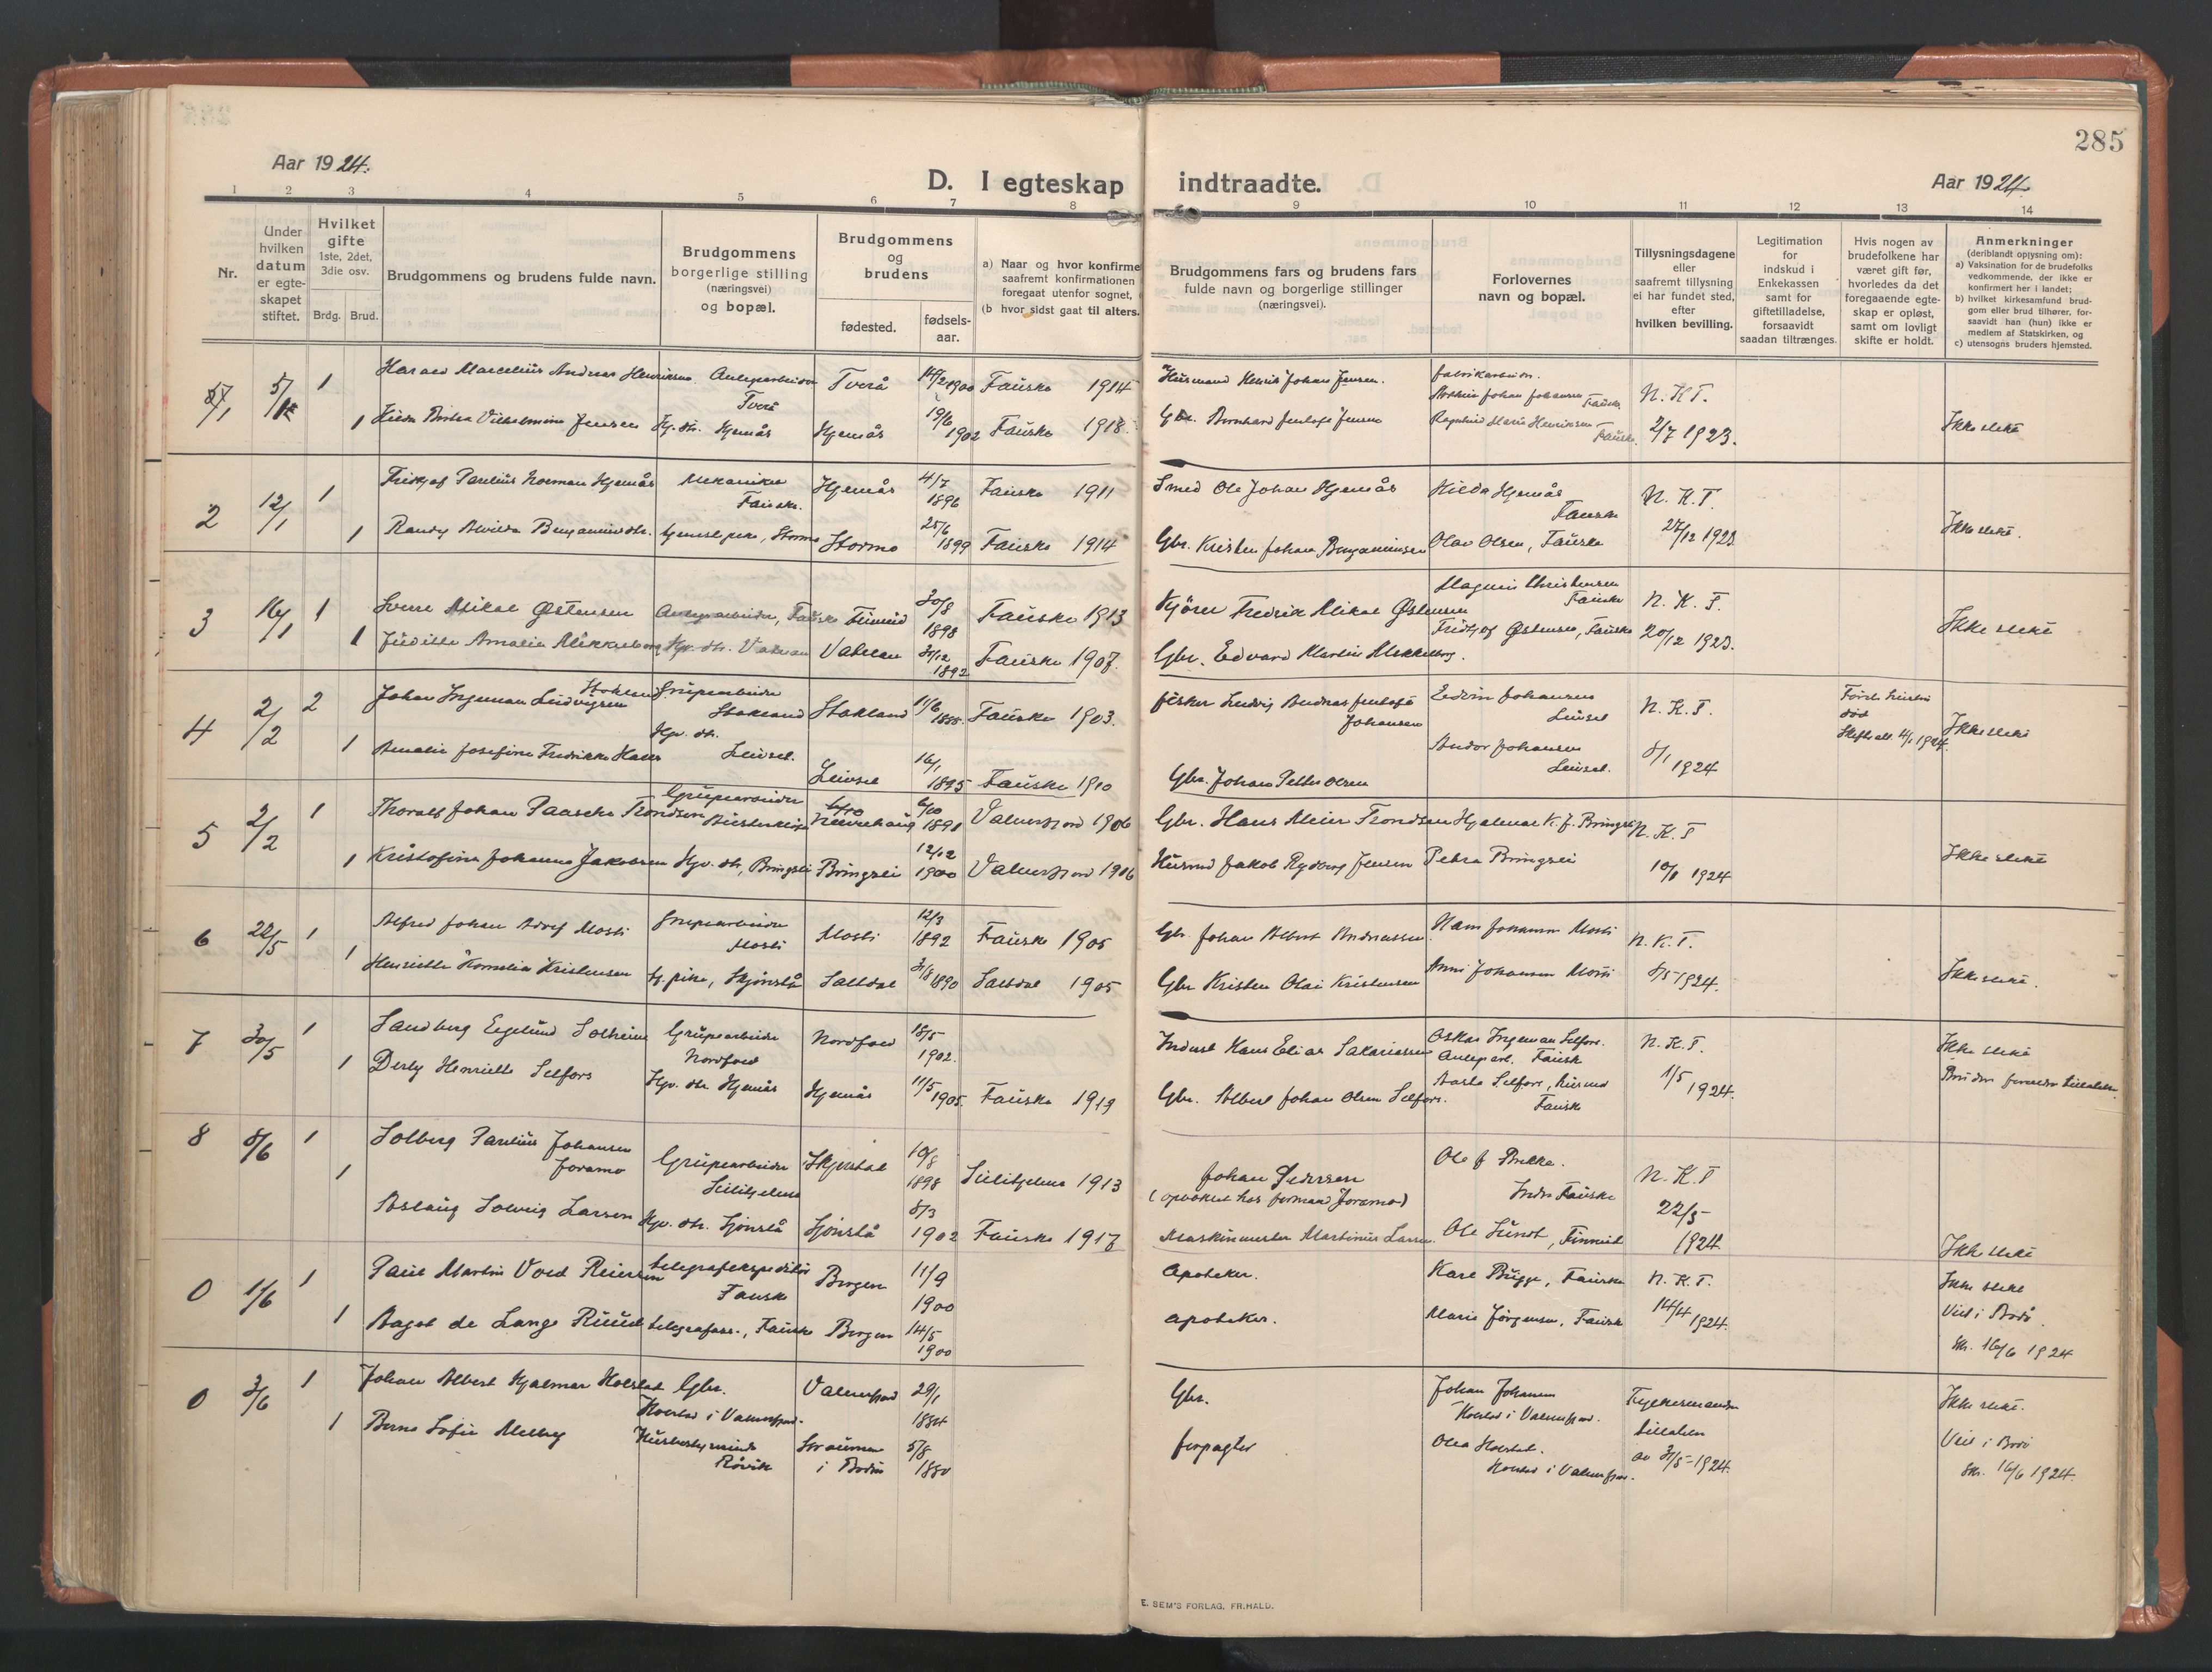 285
Aar 1924.
D. I egteskap indtraadte.
Aar 1924.
1 2 3 4 5 6 7 8 9 10 11 12 13 14
Nr.
Under hvilken datum er egte-skapet stiftet.
Hvilket gifte 1ste, 2det, 3die osv.
Brdg. Brud.
Brudgommens og brudens fulde navn.
Brudgommens borgerlige stilling (næringsvei) og bopæl.
Brudgommens og brudens
fødested.
fødsels-aar.
a) Naar og hvor konfirme
saafremt konfirmationen
foregaat utenfor sognet,
(b hvor sidst gaat til alters.
Brudgommens fars og brudens fars
fulde navn og borgerlige stillinger
(næringsvei).
Forlovernes
navn og bopæl.
Tillysningsdagene
eller
saafremt tillysning
ei har fundet sted,
efter
hvilken bevilling.
Legitimation
for
indskud i
Enkekassen
samt for
giftetilladelse,
forsaavidt
saadan tiltrænges.
Hvis nogen av
brudefolkene har
været gift før,
hvorledes da det
foregaaende egte-
skap er opløst,
samt om lovligt
skifte er holdt.
Anmerkninger
(deriblandt opiysning om):
a) Vaksination for de brudefolks
vedkommende, der ikke er
konfirmert her i landet;
b) hvilket kirkesamfund brud-
gom eller brud tilhører, for-
saavidt han (hun) ikke er
medlem af Statskirken, og
c) utensogns bruders hjemsted.
5/1 1 Harald Marcelius Andreas Henriksen Anlegsarbeider Tverå Tverå 1900 Fauske 1914
Husmand Henrik Johan Jensen. fabrikarbeider. Johan Johansen Fauske N. K. T.
1 Vilhelmine Jensen Gp. dtr. Hjemås Hjemås 19/6 1902 Fauske 1918.
Gbr. Bernhard Jentoft Jensen Ragnhild Marie Henriksen Fauske. 2/7 1923. Ikke slekt
2 12/1 1 Fridtjof Parelius Norman Hjemås Mekaniker Fauske. Hjemås 4/7 1896 Fauske 1911
Smed Ole Johan Hjemås Hilda Hjemås Fauske N. K. T.
1 Randy Alvilda Benjaminsdtr. Stormo Stormo 25/6 1899 Fauske 1914
Gbr. Kristen Johan Benjaminsen Olav Olsen, Fauske 27/12 1923 Ikke slekt.
3 16/1 1 Sverre Mikal Østensen Anlegsarbeider, Fauske Finneid 30/8 1898 Fauske 1913
Kjører Fredrik Mikal Østensen Magnus Christensen Fauske N. K. T.
1 Judithe Amalia Mikkelborg Gp. dtr. Valnean Valnean 31/12 1892 Fauske 1907.
Gbr. Edvard Martin Mikkelborg. Fridtjof Østensen, Fauske 20/12 1923. Ikke slekt
4 2/2 2 Johan Ingeman Ludvigsen Stokland Grubearbeider Stokland Stokland 11/6 1888 Fauske 1903.
fisker Ludvig Andreas Jentoft Johansen Edvin Johansen Leivset N. K. T. Første hustru død
1 Amalie Josefine Fredrikke Hans Gp. dtr. Leivset. Leivset 16/1 1895 Fauske 1910
Gbr. Johan Petter Olsen Andor Johansen Leivset. 8/1 1924 Ikke slekt
5 2/2 1 Thoralf Johan Paasche Trondsen Grubearbeider 6/10 1891 Valnesfjord 1906
Gbr. Hans Meier Trondsen Hjalmar K. J. Bringsli N. K. T
1 Kristofine Johanna Jakobsen Gp. dtr, Bringsli Bringsli 12/12 1900 Valnesfjord 1916
Husmd Jakob Rydberg Jensen Petra Bringsli 10/1 1924 Ikke slekt
6 22/5 1 Alfred Johan Adolf Mosti Grubearbeider Mosti Mosti 12/3 1892 Fauske 1905
Gbr. Johan Albert Andreassen Hans Johansen Mosti N. K. T.
1 Henriette Kornelia Kristensen Gp. pike, Skjønstå Saltdal 31/8 1890 Saltdal 1905
Gbr Kristen Olai Kristensen Anni Johansen Mosti 8/5 1924. Ikke slekt.
7 30/5 1 Sandberg Egelund Solheim Grubearbeider Nordfold Nordfold 18/5 1902.
Indust Hans Elias Sakariassen Oskar Ingeman Selfors. Anlegsarb. Fausk N. K. T. Ikke slekt
1 Derly Henriette Selfors Gp. dtr Hjemås Hjemås 11/5 1905. Fauske 1919
Gbr. Albert Johan Olsen Selfors. Selfors, husmd Fausk 1/5 1924.
8 8/6 1 Solberg Parelius Johansen Joramo Grubearbeider Sulitjelma Skjerstad 10/8 1898 Sulitjelma 1913
Johan Pedersen (opvokset hos formand Joramo) Ole J. Brekke. Indre Fauske N. K. T
1 Aslaug Solveig Larsen Gp. dtr. Sjønstå Sjønstå 8/3 1902 Fauske 1917
Maskinmester Martinus Larsen. Ole Sundt, Finneid 22/5 1924 Ikke slekt
0 1/6 1 Paul Martin Vold Reiersen telegrafekspeditør Fauske Bergen 11/9 1900
Apoteker. Kare Brügge, Fauske N. K. T. Ikke slekt
1 Aagot de Lange Ruud telegrafass., Fauske Bergen 14/5 1900
apoteker. Marie Jørgensen, Fauske 14/4 1924. Viet i Bodø. Skr. 16/6 1924
0 3/6 1 Johan Albert Hjalmar Holstad Gbr. Holstad i Valnesfjord. Valnesfjord 29/1 1884
Gbr. Johan Johansen Holstad i Valnesfjord. Fylkesmandens Ikke slekt.
1 Berna Sofie Melby Husbestyrerinde Røvik Straumen i Bodin 5/8 1880
forpagter Olea Holstad. Holstad i Valnesfjord. tillatelse av 31/5-1924. Viet i Bodø Skr. 16/6 1924.
E. SEM'S FORLAG, FR.HALD.